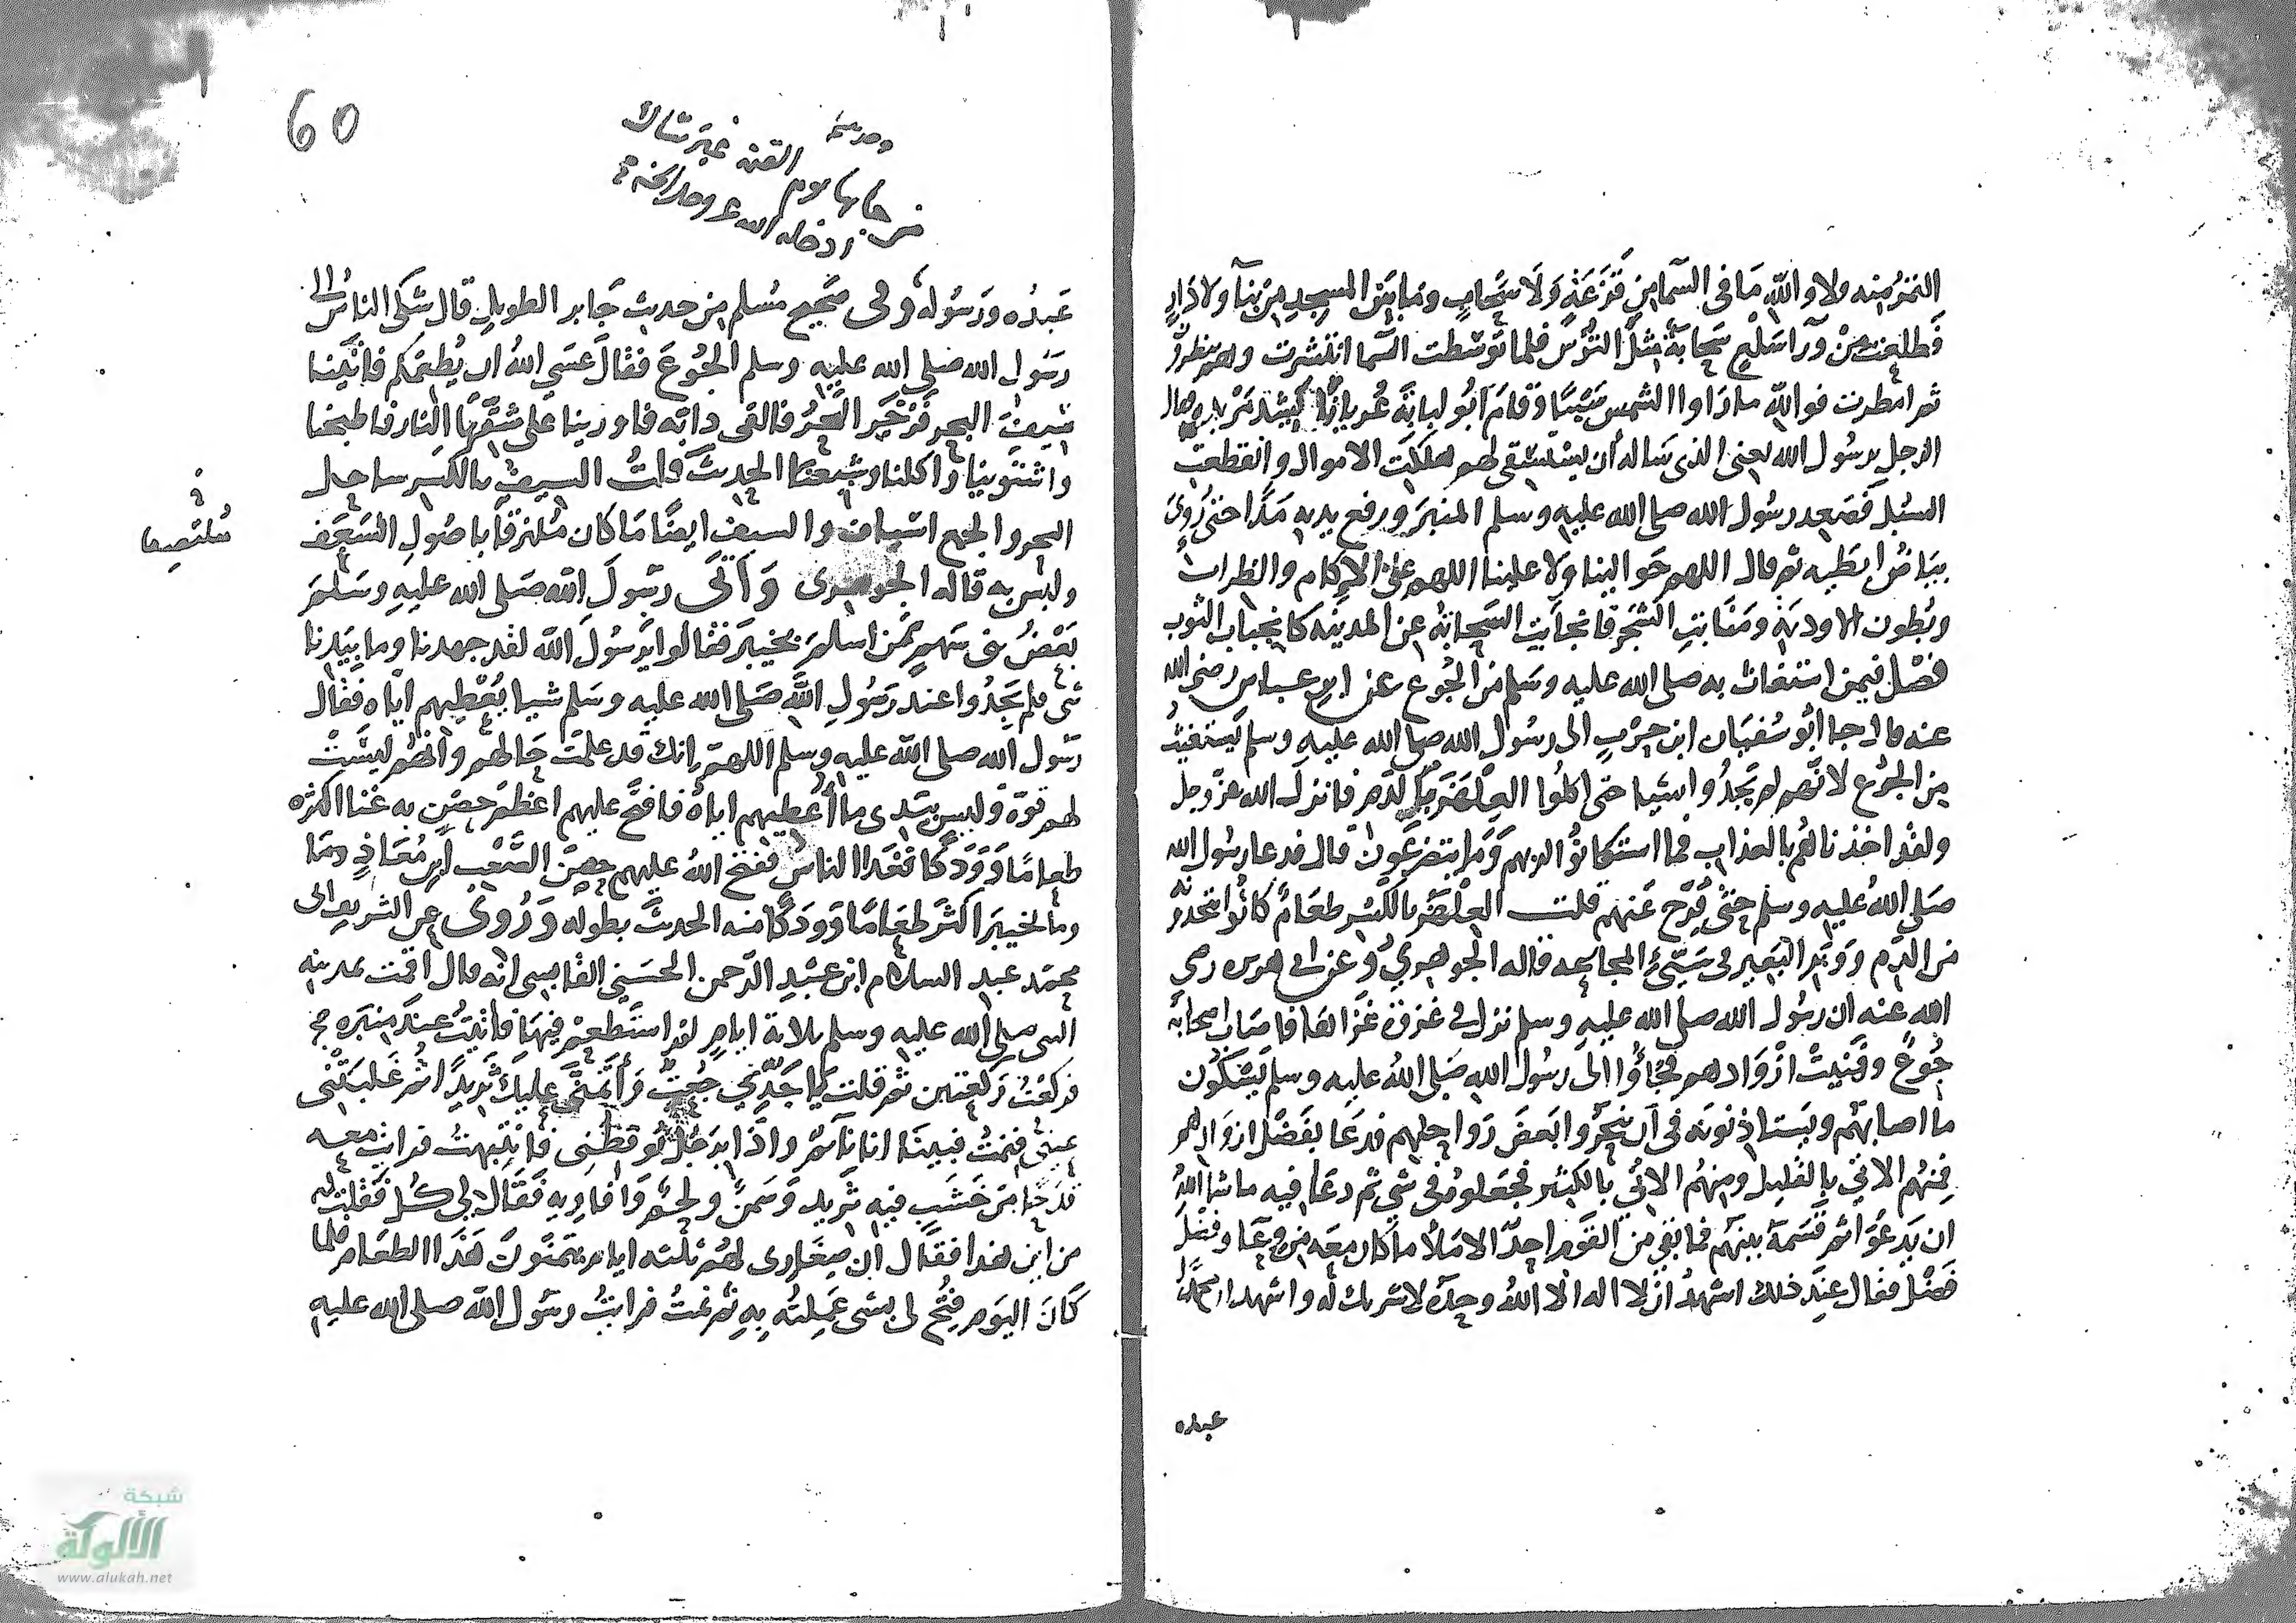 التمر منه ولا والله ما في السما من قزعة ولا سحاب وما بين المسجد من بنآ ولا دار
فطلعت من ورآ سلع سحابة مثل الترس فلما توسطت السما انتشرت وهم ينظرون
ثم امطرت فوالله ما راوا الشمس سبتا وقام ابو لبابة عريانا يشد مربده
الرجل يرسول الله يعني الذي ساله أن يستسقي لهم هلكت الاموال وانقطعت
السبل فصعد رسول الله صلى الله عليه وسلم المنبر ورفع يديه مدا حتى رؤي
بياض ابطيه ثم قال اللهم حوالينا ولا علينا اللهم على الاكام والظراب
وبطون الاودية ومنابت الشجر فانجابت السحابة عن المدينه كانجياب الثوب
فصل فيمن استغاث به صلى الله عليه وسلم من الجوع عن ابن عباس رضي الله
عنه قال جا ابو سفيان ابن حرب الى رسول الله صلى الله عليه وسلم يستغيث
من الجوع لانهم لم يجدوا شيا حتى اكلوا العلهز بالدم فانزل الله عز وجل
ولقد اخذناهم بالعذاب فما استكانوا لربهم وما يتضرعون قال فدعا رسول الله
صلى الله عليه وسلم حتى فرج عنهم قلت العلهز بالكسر طعام كانوا يتخذونه
من الدم ووبر البعير في سني المجاعه قاله الجوهري وعن ابي هريره رضي
الله عنه ان رسول الله صلى الله عليه وسلم نزل في غزوة غزاها فاصاب اصحابه
جوع وفنيت ازوادهم فجاؤا الى رسول الله صلى الله عليه وسلم يشكون
ما اصابهم ويستاذنونه في أن ينحروا بعض رواحلهم فدعا بفضل ازوادهم
فمنهم الاتي بالقليل ومنهم الاتي بالكثير فجعلوه في شي ثم دعا فيه ما شا الله
ان يدعو ثم قسمه بينهم فما بقي من القوم احد الا ملأ ما كان معه من وعآ وفضل
فضل فقال عند ذلك اشهد ان لا اله الا الله وحده لا شريك له واشهد ان محمدا
عبده
60
غير شاك
ادخله الله
عبده ورسوله وفي صحيح مسلم من حديث جابر الطويل قال شكى الناس الى
رسول الله صلى الله عليه وسلم الجوع فقال عسى الله ان يطعمكم فاتينا
سيف البحر فزخر البحر فالقى دابه فاورينا على شقها النار فاطبخنا
واشتوينا واكلنا وشبعنا الحديث قلت السيف بالكسر ساحل
البحر والجمع اسياف والسيف ايضا ما كان ملتزقا باصول السعف
وليس به قاله الجوهري وأتى رسول الله صلى الله عليه وسلم
بعض بني سهم ممن اسلم بخيبر فقالوا يرسول الله لقد جهدنا وما بيدنا
شي فلم يجدوا عند رسول الله صلى الله عليه وسلم شيا يعطيهم اياه فقال
رسول الله صلى الله عليه وسلم اللهم انك قد علمت حالهم وانهم ليست
لهم قوة وليس بيدي ما أعطيهم اياه فافتح عليهم اعظم حصن به غنا اكثره
طعاما وودكا فغدا الناس ففتح الله عليهم حصن الصعب ابن معاذ
وما بخيبر اكثر طعاما وودكا منه الحديث بطوله وروي عن الشريف ابي
محمد عبد السلام ابن عبد الرحمن الحسيني القابسي انه قال اقمت بمدينه
النبي صلى الله عليه وسلم ثلاثة ايام لم استطعم فيها فاتيت عند منبره
فركعت ركعتين ثم قلت يا جدي جعت وأتمنى عليك ثريدا ثم غلبتني
عيني فنمت فبينا انا نائم واذا برجل يوقظني فانتبهت فرايت معه
قدحا من خشب فيه ثريد وسمن ولحم وافاويه فقال لي كل فقلت له
من اين هذا فقال ان صغاري لهم ثلثه ايام يتمنون هذا الطعام فلما
كان اليوم فتح لي بشي عملته به ثم نمت فرايت رسول الله صلى الله عليه
ملتصقا
شبكة
الألوكة
www.alukah.net